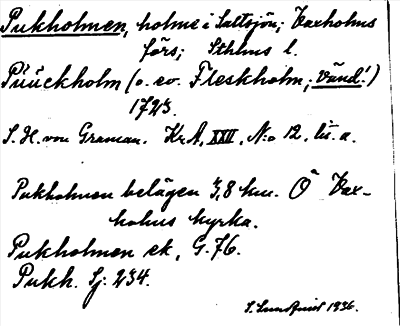 Pukholmen, holme i Saltsjön; Vaxholms
förs; Sthlms l.
Püückholm (o. ev. Fleskholm; vänd!)
1723.
S. H. von Graman. Kr A, XXII, No 12, lit. a.
Pukholmen belägen 3,8 km. Ö Vax-
holms kyrka.
Pukholmen ek, G. 76.
Pukh. Sj: 234.
S. Sundqvist 1936.